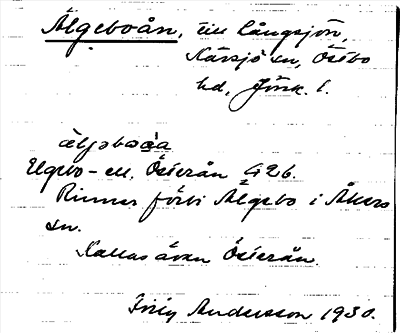 Älgeboån, till Långsjön,
Nävsjö sn, Östbo
hd, Jönk. l.
äljəboɑ
Elgebo- ell. Österån G2b.
Rinner förbi Älgebo i Åkers
sn.
Kallas även Österån.
Andersson 1930.